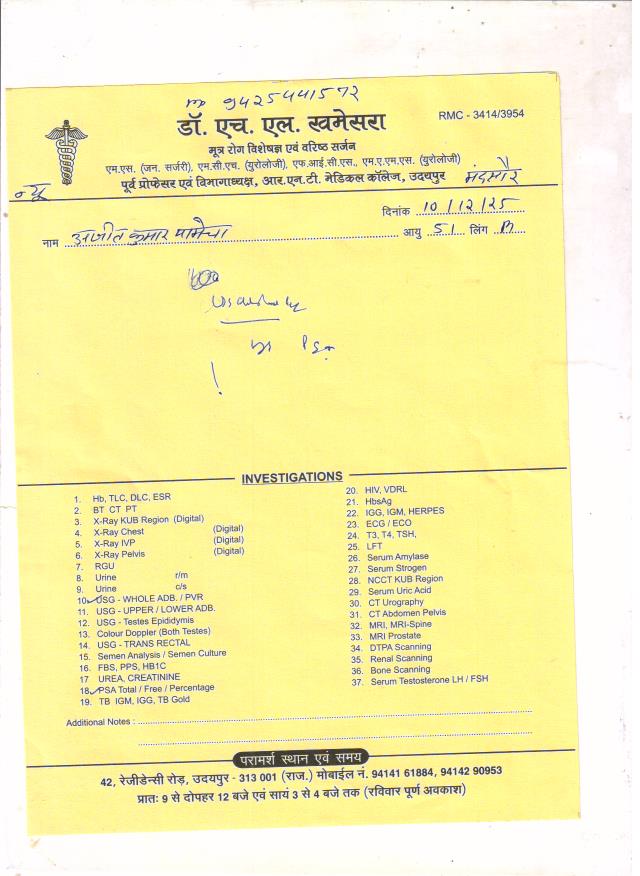 m 9425441572
RMC - 3414/3954
डॉ. एच. एल. खमेसरा
मूत्र रोग विशेषज्ञ एवं वरिष्ठ सर्जन
एम.एस. (जन. सर्जरी), एम.सी.एच. (युरोलोजी), एफ.आई.सी.एस., एम.ए.एम.एस. (युरोलोजी)
पूर्व प्रोफेसर एवं विभागाध्यक्ष, आर.एन.टी. मेडिकल कॉलेज, उदयपुर
न्यू
मंदसौर
दिनांक 10/12/25
नाम अजीत कुमार पामेचा आयु 51 लिंग M
INVESTIGATIONS
1. Hb, TLC, DLC, ESR
2. BT CT PT
3. X-Ray KUB Region (Digital)
4. X-Ray Chest (Digital)
5. X-Ray IVP (Digital)
6. X-Ray Pelvis (Digital)
7. RGU
8. Urine r/m
9. Urine c/s
10. USG - WHOLE ADB. / PVR
11. USG - UPPER / LOWER ADB.
12. USG - Testes Epididymis
13. Colour Doppler (Both Testes)
14. USG - TRANS RECTAL
15. Semen Analysis / Semen Culture
16. FBS, PPS, HB1C
17 UREA, CREATININE
18. PSA Total / Free / Percentage
19. TB IGM, IGG, TB Gold
20. HIV, VDRL
21. HbsAg
22. IGG, IGM, HERPES
23. ECG / ECO
24. T3, T4, TSH,
25. LFT
26. Serum Amylase
27. Serum Strogen
28. NCCT KUB Region
29. Serum Uric Acid
30. CT Urography
31. CT Abdomen Pelvis
32. MRI, MRI-Spine
33. MRI Prostate
34. DTPA Scanning
35. Renal Scanning
36. Bone Scanning
37. Serum Testosterone LH / FSH
Additional Notes :
परामर्श स्थान एवं समय
42, रेजीडेन्सी रोड़, उदयपुर - 313 001 (राज.) मोबाईल नं. 94141 61884, 94142 90953
प्रातः 9 से दोपहर 12 बजे एवं सायं 3 से 4 बजे तक (रविवार पूर्ण अवकाश)